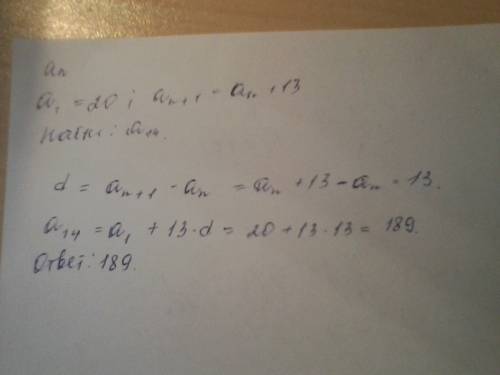 aₙ
a₁ = 20 ; aₙ₊₁ = aₙ + 13
Найти: a₁₄.
d = aₙ₊₁ - aₙ = aₙ + 13 - aₙ = 13.
a₁₄ = a₁ + 13·d = 20 + 13·13 = 189.
Ответ: 189.